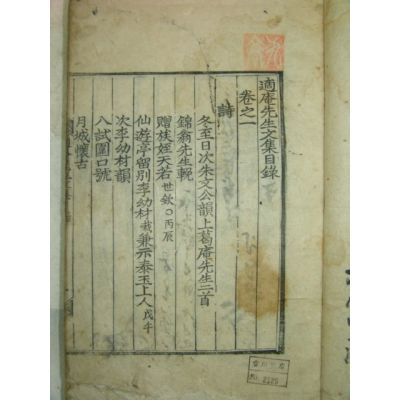 適庵先生文集目錄
卷之一
詩
冬至日次朱文公韻上葛庵先生二首
錦翁先生輓
贈族姪天若世欽○丙辰
仙遊亭留別李幼材栽兼示泰玉上人戊午
次李幼材韻
入試圍口號
月城懷古